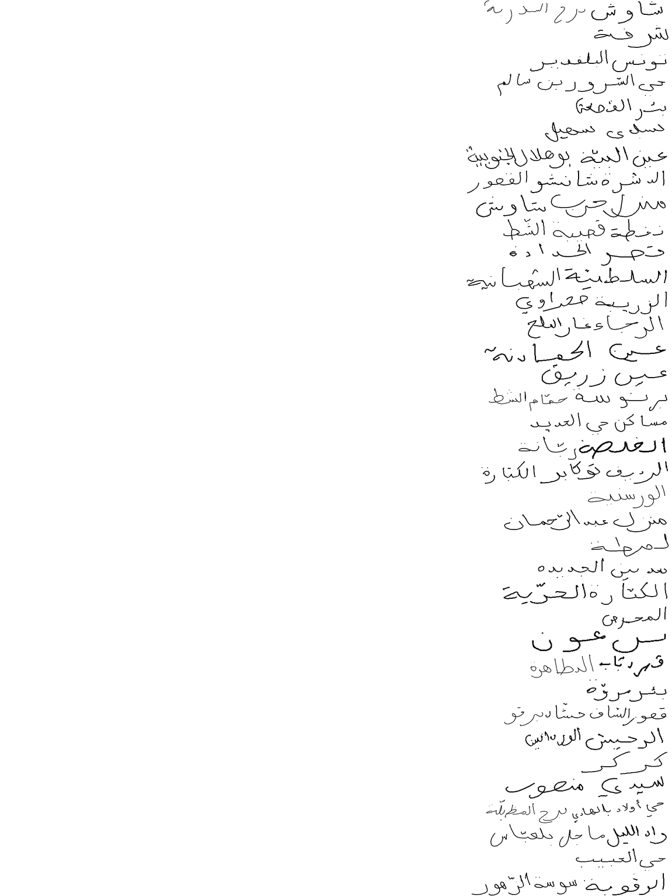 شاوش برج السدرية
شرفة
تونس البلفدير
حي السرور بن سالم
بئر القصعة
سيدي سهيل
عين البية بوهلال الجنوبية
الدشرة شانشو القصور
منزل حرب شاوش
نفطة قصيبة الشط
قصر الحدادة
السلطنية الشهبانية
الزريبة حمراوي
الرجاء غار الملح
عين الحمادنة
عين زريق
برنوسة حمام الشط
مساكن حي الجديد
الغليصة رتانة
الريف توكابر الكتارة
الورسنية
منزل عبد الرحمان
لمرطة
مدين الجديده
الكتارة الحرية
المحرص
بن عون
قمرت الطاهره
بئر مروة
قصور الساف حشاد برقو
الرحيش
كركر
سيدي منصور
حي أولاد بالهادي برج المطرية
واد الليل ماجل بلعباس
حي الحبيب
الرقوبة سوسة الزهور